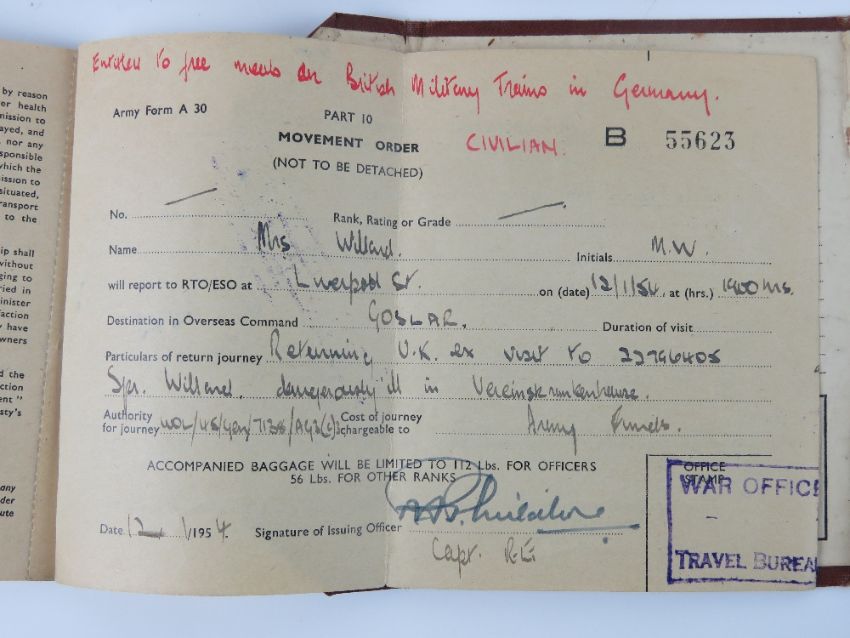 by reason
or health
mission to
ayed, and
nor any
sponsible
which the
ission to
situated,
ransport
to the
ip shall
without
ging to
ried in
inister
faction
y have
owners
d the
ction
ent "
sty's
any
der
ute
Entitled to free meals on British Military Trains in Germany.
Army Form A 30
PART 10
MOVEMENT ORDER
(NOT TO BE DETACHED)
CIVILIAN.
B 55623
No. Rank, Rating or Grade
Name Mrs Willard. Initials M.W.
will report to RTO/ESO at Liverpool St. on (date) 12/1/54, at (hrs.) 1900 hrs.
Destination in Overseas Command GOSLAR. Duration of visit
Particulars of return journey Returning U.K. ex visit to 22796405
Spr. Willard. dangerously ill in Vereinskrankenhause.
Authority for journey Cost of journey chargeable to Army Funds.
ACCOMPANIED BAGGAGE WILL BE LIMITED TO 112 Lbs. FOR OFFICERS
56 Lbs. FOR OTHER RANKS
OFFICE STAMP
WAR OFFICE
TRAVEL BUREA
Date 12 1/1954. Signature of Issuing Officer
Capt. RE